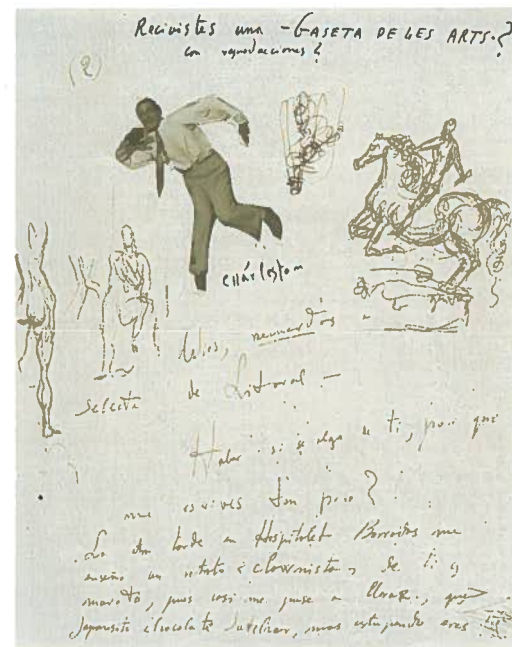 Recivistes una - GASETA DE LES ARTS.?
con reproducciones?
(2)
Chárleston
Adios, recuerdos a
Selecta de Litoral -
Habar si se algo de ti, por que
me escrives tan poco?
La otra tarde en Hospitalet Barradas me
enseño un retrato clownista de ti y
casi me puse a llorar, que
chocolate eres